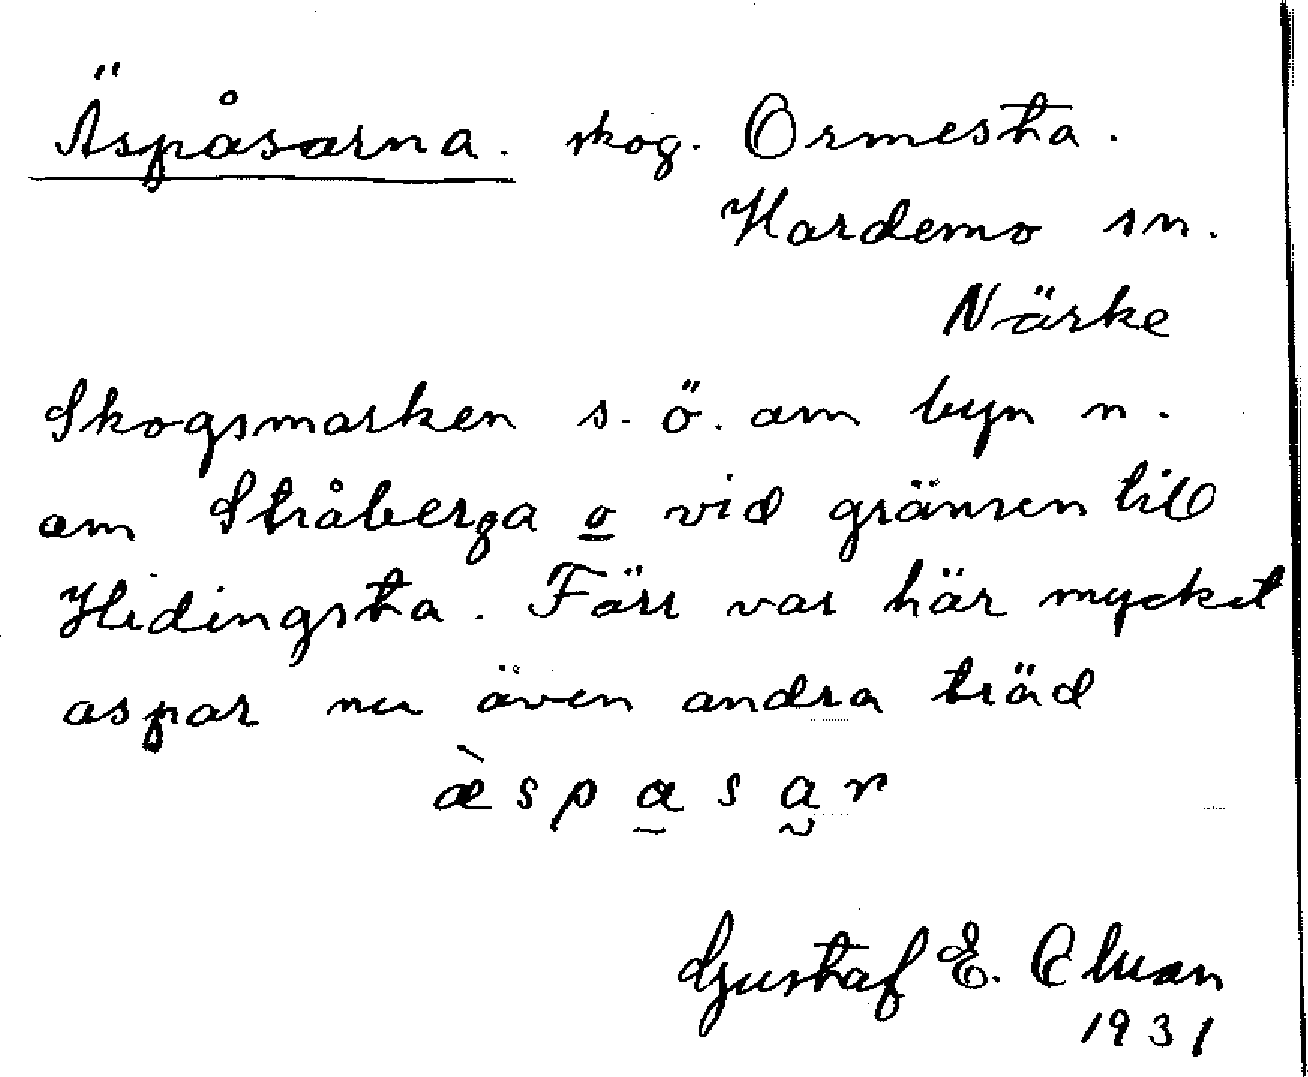 Äspåsarna. skog. Ormesta.
Hardemo sn.
Närke
Skogsmarken s. ö. om byn n.
om Stråberga o vid gränsen till
Hidingsta. Förr var här mycket
aspar nu även andra träd
æ̀spasar
Gustaf E.
1931